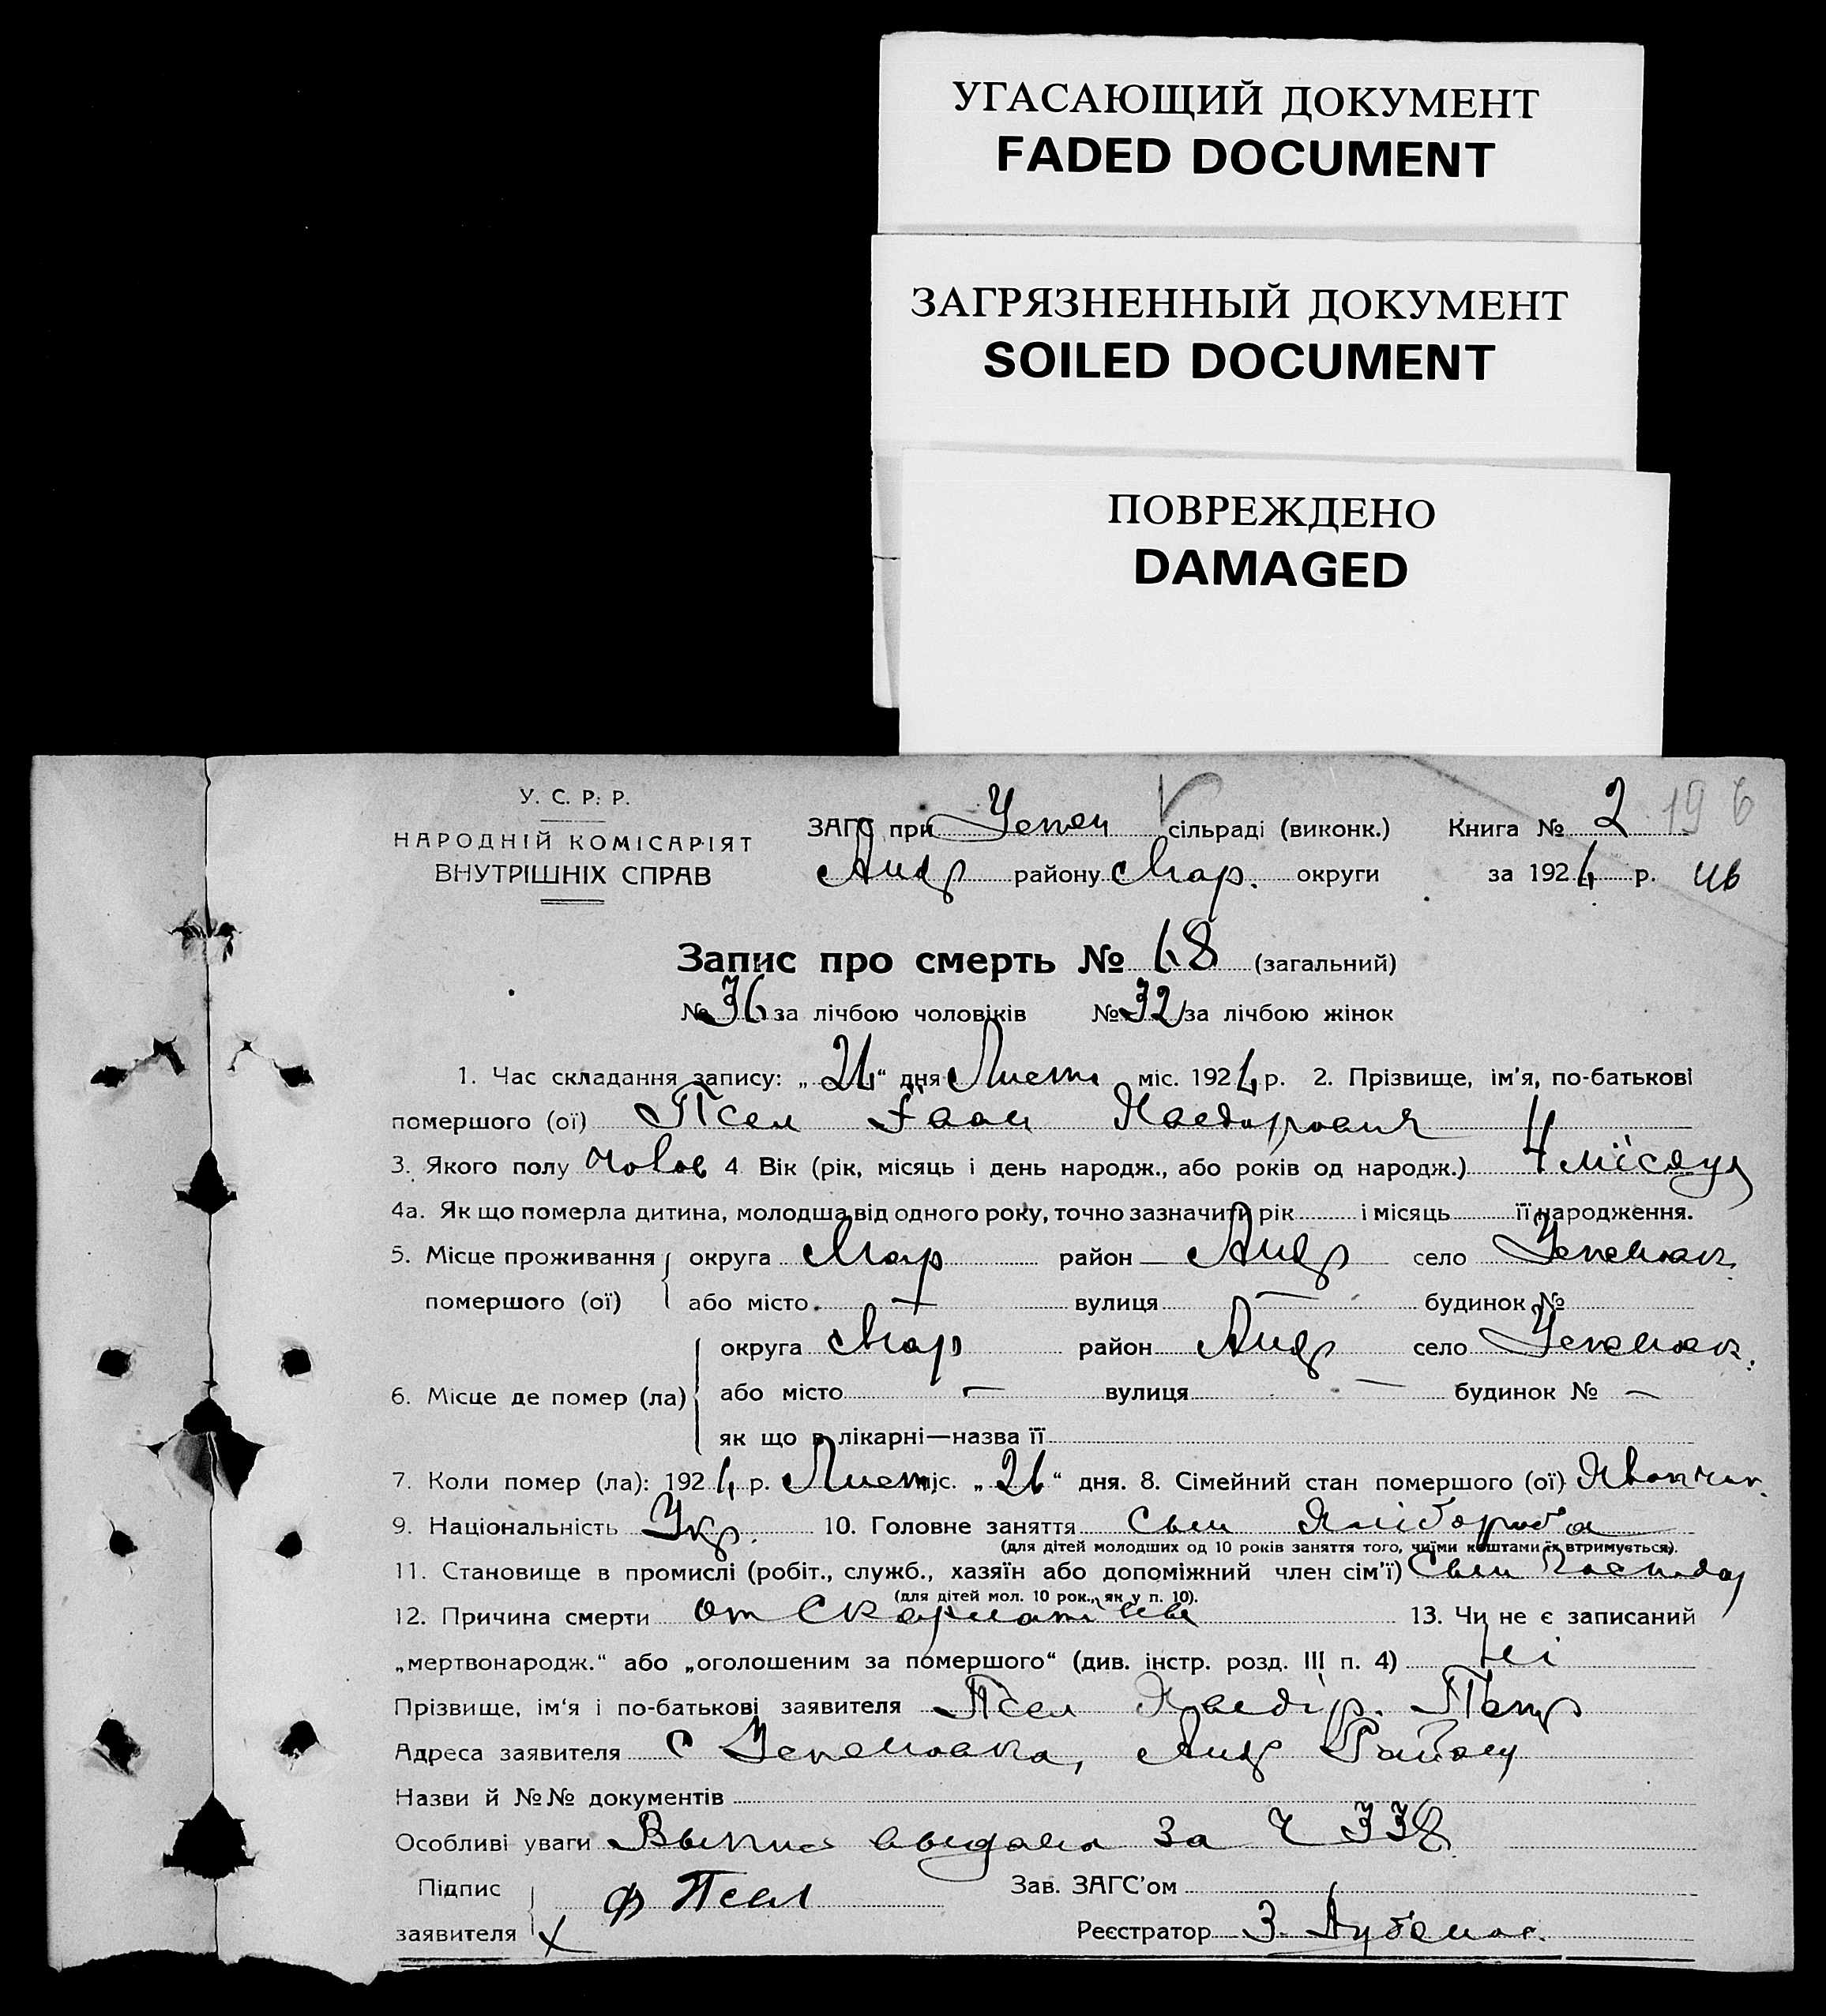 УГАСАЮЩИЙ ДОКУМЕНТ
FADED DOCUMENT
ЗАГРЯЗНЕННЫЙ ДОКУМЕНТ
SOILED DOCUMENT
ПОВРЕЖДЕНО
DAMAGED
У. С. Р. Р.
НАРОДНІЙ КОМІСАРІЯТ
ВНУТРІШНІХ СПРАВ
ЗАГС при Успен сільраді (виконк.) Книга № 2 196
Андр району Мар. округи за 1924 р.
Запис про смерть № 68 (загальний)
№ 36 за лічбою чоловіків № 32 за лічбою жінок
1. Час складання запису: „ “ дня Лист міс. 1924 р. 2. Прізвище, ім’я, по-батькові
помершого (ої) Псел Іван
3. Якого полу Чолов 4 Вік (рік, місяць і день народж., або років од народж.) 4 місяця
4а. Як що померла дитина, молодша від одного року, точно зазначити рік і місяць її народження.
5. Місце проживання помершого (ої) округа Мар район Андр село
або місто вулиця — будинок №
6. Місце де помер (ла) округа Мар район Андр село
або місто — вулиця — будинок № —
як що в лікарні—назва її
7. Коли помер (ла): 1924 р. Лист міс. „ “ дня. 8. Сімейний стан помершого (ої)
9. Національність Укр. 10. Головне заняття Сын Хлібороба
(для дітей молодших од 10 років заняття того, чиїми коштами їх втримується).
11. Становище в промислі (робіт., служб., хазяїн або допоміжний член сім’ї) Сын
(для дітей мол. 10 рок., як у п. 10).
12. Причина смерти от Скарлатины 13. Чи не є записаний
„мертвонародж.“ або „оголошеним за помершого“ (див. інстр. розд. III п. 4) Ні
Прізвище, ім’я і по-батькові заявителя Псел Петр
Адреса заявителя с Андр Району
Назви й №№ документів
Особливі уваги Выпись выдана за Ч 338
Підпис заявителя Ф Псел Зав. ЗАГС’ом
Реєстратор З.